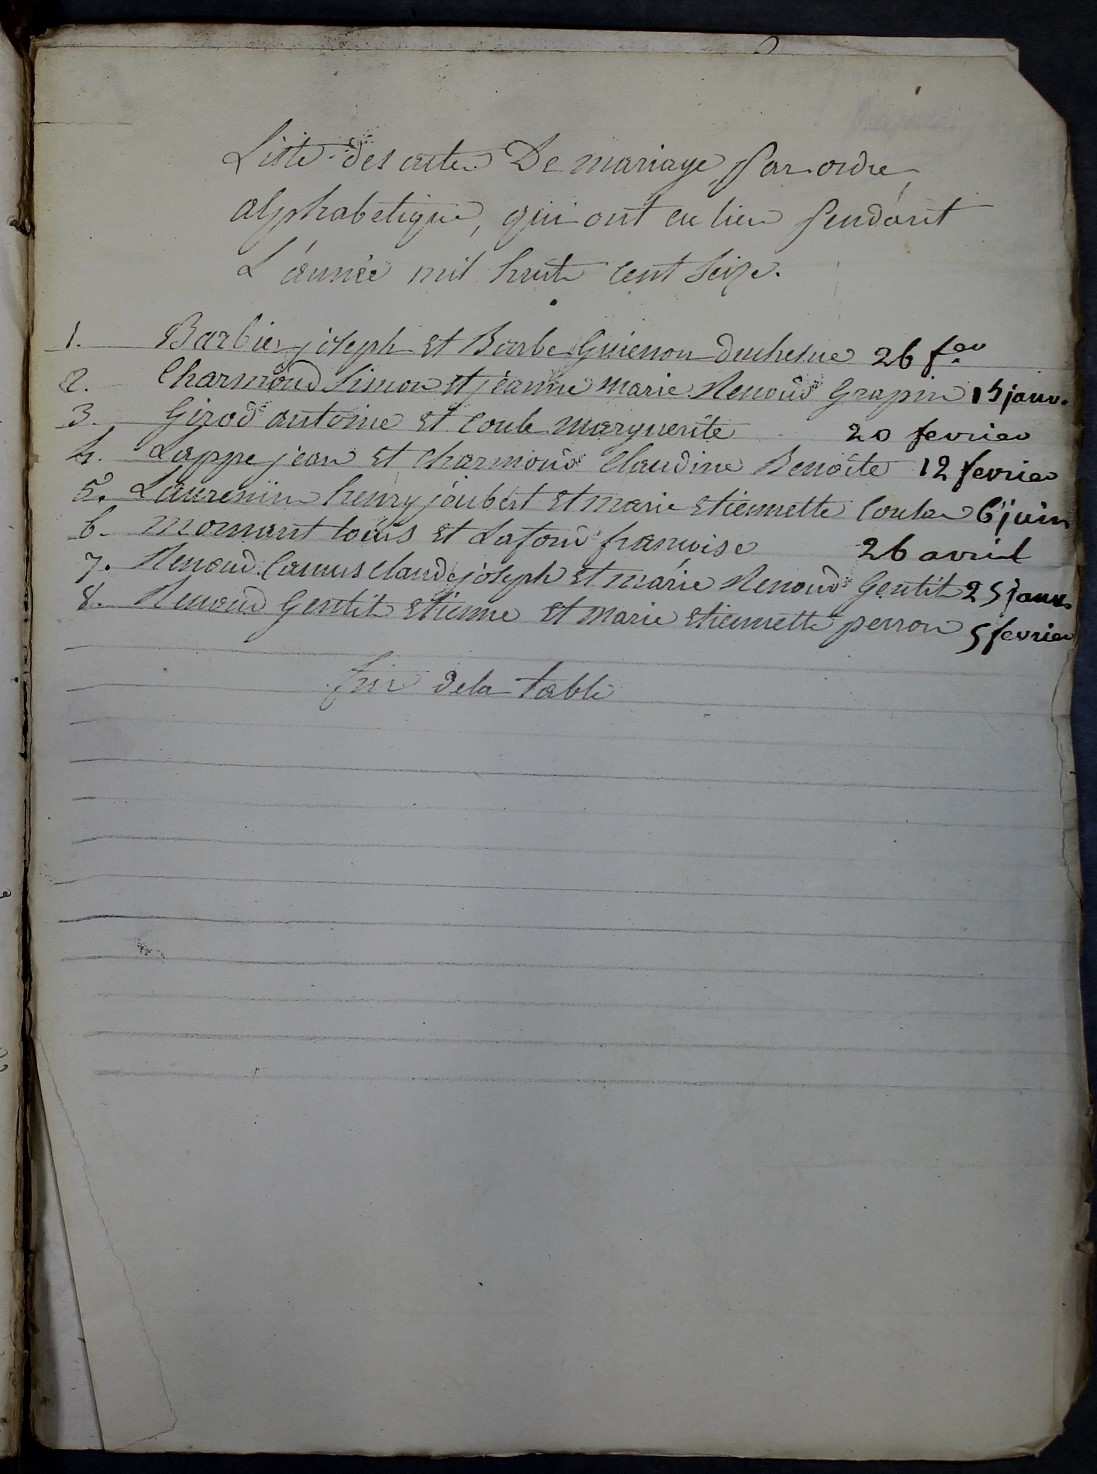 Liste des actes De mariage par ordre
alphabetique, qui ont eu lieu pendant
L'année mil huit cent seize.
1. Barbier joseph et Barbe Guienon duchesne 26 fev
2. Charmoud Simon et jeanne marie Renoud Grapin 15 janv.
3. Girod antoine et Coule marguerite 20 fevrier
4. Lappe jean et Charmoud Claudine Benoite 12 fevrier
5. henry joubert et marie etiennette 6 juin
6. momant louis et Lafond francoise 26 avril
7. Renoud Camus Claude joseph et marie Renoud Gentit 25 janv
8. Renoud Gentit etienne et marie etiennette perron 5 fevrier
fin de la table